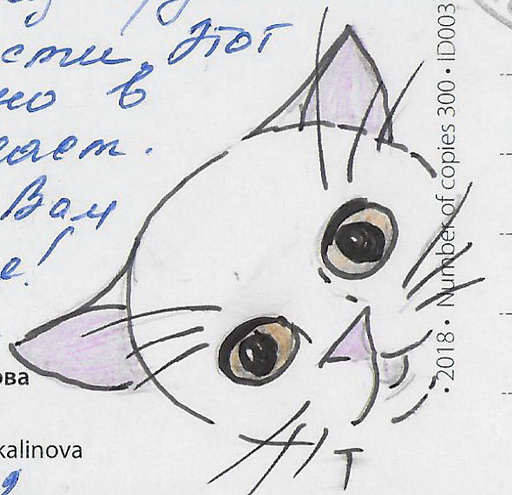 Этот
но в
Вам
е!
ова
kalinova
• 2018 • Number of copies 300 • ID003